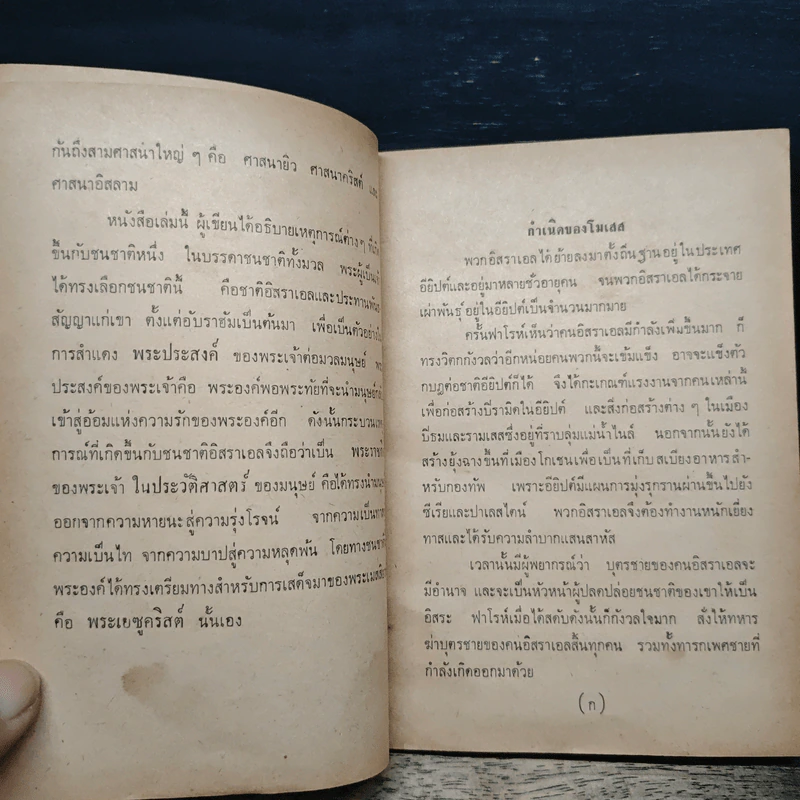 กันถึงสามศาสนาใหญ่ ๆ คือ ศาสนายิว ศาสนาคริสต์ และ
ศาสนาอิสลาม
หนังสือเล่มนี้ ผู้เขียนได้อธิบายเหตุการณ์ต่างๆ ที่เกิด
ขึ้นกับชนชาติหนึ่ง ในบรรดาชนชาติทั้งมวล พระผู้เป็นเจ้า
ได้ทรงเลือกชนชาตินี้ คือชาติอิสราเอลและประทานพันธ
สัญญาแก่เขา ตั้งแต่อับราฮัมเป็นต้นมา เพื่อเป็นตัวอย่างใน
การสำแดง พระประสงค์ ของพระเจ้าต่อมวลมนุษย์ พระ
ประสงค์ของพระเจ้าคือ พระองค์พอพระทัยที่จะนำมนุษย์
เข้าสู่อ้อมแห่งความรักของพระองค์อีก ดังนั้นกระบวนเหตุ
การณ์ที่เกิดขึ้นกับชนชาติอิสราเอลจึงถือว่าเป็น
ของพระเจ้า ในประวัติศาสตร์ ของมนุษย์ คือได้ทรงนำมนุษย์
ออกจากความหายนะสู่ความรุ่งโรจน์ จากความเป็นทาส
ความเป็นไท จากความบาปสู่ความหลุดพ้น โดยทางชนชาตินี้
พระองค์ได้ทรงเตรียมทางสำหรับการเสด็จมาของพระเมสสิยาห์
คือ พระเยซูคริสต์ นั้นเอง
กำเนิดของโมเสส
พวกอิสราเอลได้ย้ายลงมาตั้งถิ่นฐานอยู่ในประเทศ
อียิปต์และอยู่มาหลายชั่วอายุคน จนพวกอิสราเอลได้กระจาย
เผ่าพันธุ์อยู่ในอียิปต์เป็นจำนวนมากมาย
ครั้นฟาโรห์เห็นว่าคนอิสราเอลมีกำลังเพิ่มขึ้นมาก ก็
ทรงวิตกกังวลว่าอีกหน่อยคนพวกนี้จะเข้มแข็ง อาจจะแข็งตัว
กบฏต่อชาติอียิปต์ก็ได้ จึงได้กะเกณฑ์แรงงานจากคนเหล่านี้
เพื่อก่อสร้างปิรามิดในอียิปต์ และสิ่งก่อสร้างต่าง ๆ ในเมือง
ปีธมและรามเสสซึ่งอยู่ที่ราบลุ่มแม่น้ำไนล์ นอกจากนั้นยังได้
สร้างยุ้งฉางขึ้นที่เมืองโกเชนเพื่อเป็นที่เก็บสเบียงอาหารสำ-
หรับกองทัพ เพราะอียิปต์มีแผนการมุ่งรุกรานผ่านขึ้นไปยัง
ซีเรียและปาเลสไตน์ พวกอิสราเอลจึงต้องทำงานหนักเยี่ยง
ทาสและได้รับความลำบากแสนสาหัส
เวลานั้นมีผู้พยากรณ์ว่า บุตรชายของคนอิสราเอลจะ
มีอำนาจ และจะเป็นหัวหน้าผู้ปลดปล่อยชนชาติของเขาให้เป็น
อิสระ ฟาโรห์เมื่อได้สดับดังนั้นก็กังวลใจมาก สั่งให้ทหาร
ฆ่าบุตรชายของคนอิสราเอลสิ้นทุกคน รวมทั้งทารกเพศชายที่
กำลังเกิดออกมาด้วย
(ก)